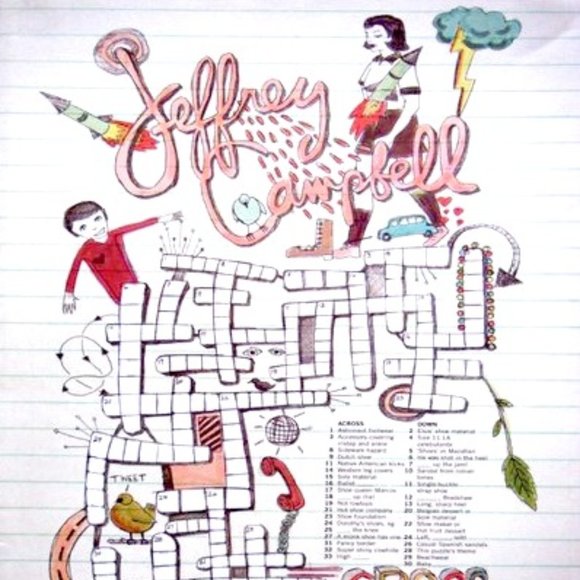 Jeffrey
Campbell
TWEET
ACROSS
1 Astronaut footwear
2 Accessory covering
instep and ankle
8 Sidewalk hazard
9 Dutch shoe
11 Native American kicks
14 Western leg covers
15 Sole material
16 Ballet
17 Shoe queen Marcos
18 up the!
19 Not lowtops
21 Hot shoe company
23 Shoe foundation
24 Dorothy's shoes, eg
25 the knee
27 A monk shoe has one
31 Pansy border
32 Super shiny cowhide
33 High
DOWN
2 Cloth shoe material
4 Size 11 LA
celebutante
5 'Shoes' in Mazatlan
6 He was shot in the heel
7 up the jam!
10 Sandal from roman
times
11 Single-buckle
strap shoe
12 Bradshaw
13 Long, sharp heel
20 Belgian dessert or
Sole material
22 Shoe maker or
Hot fruit dessert
24 Left, with
26 Casual Spanish sandals
28 This puzzle's theme
29 Beachwear
30 Baby